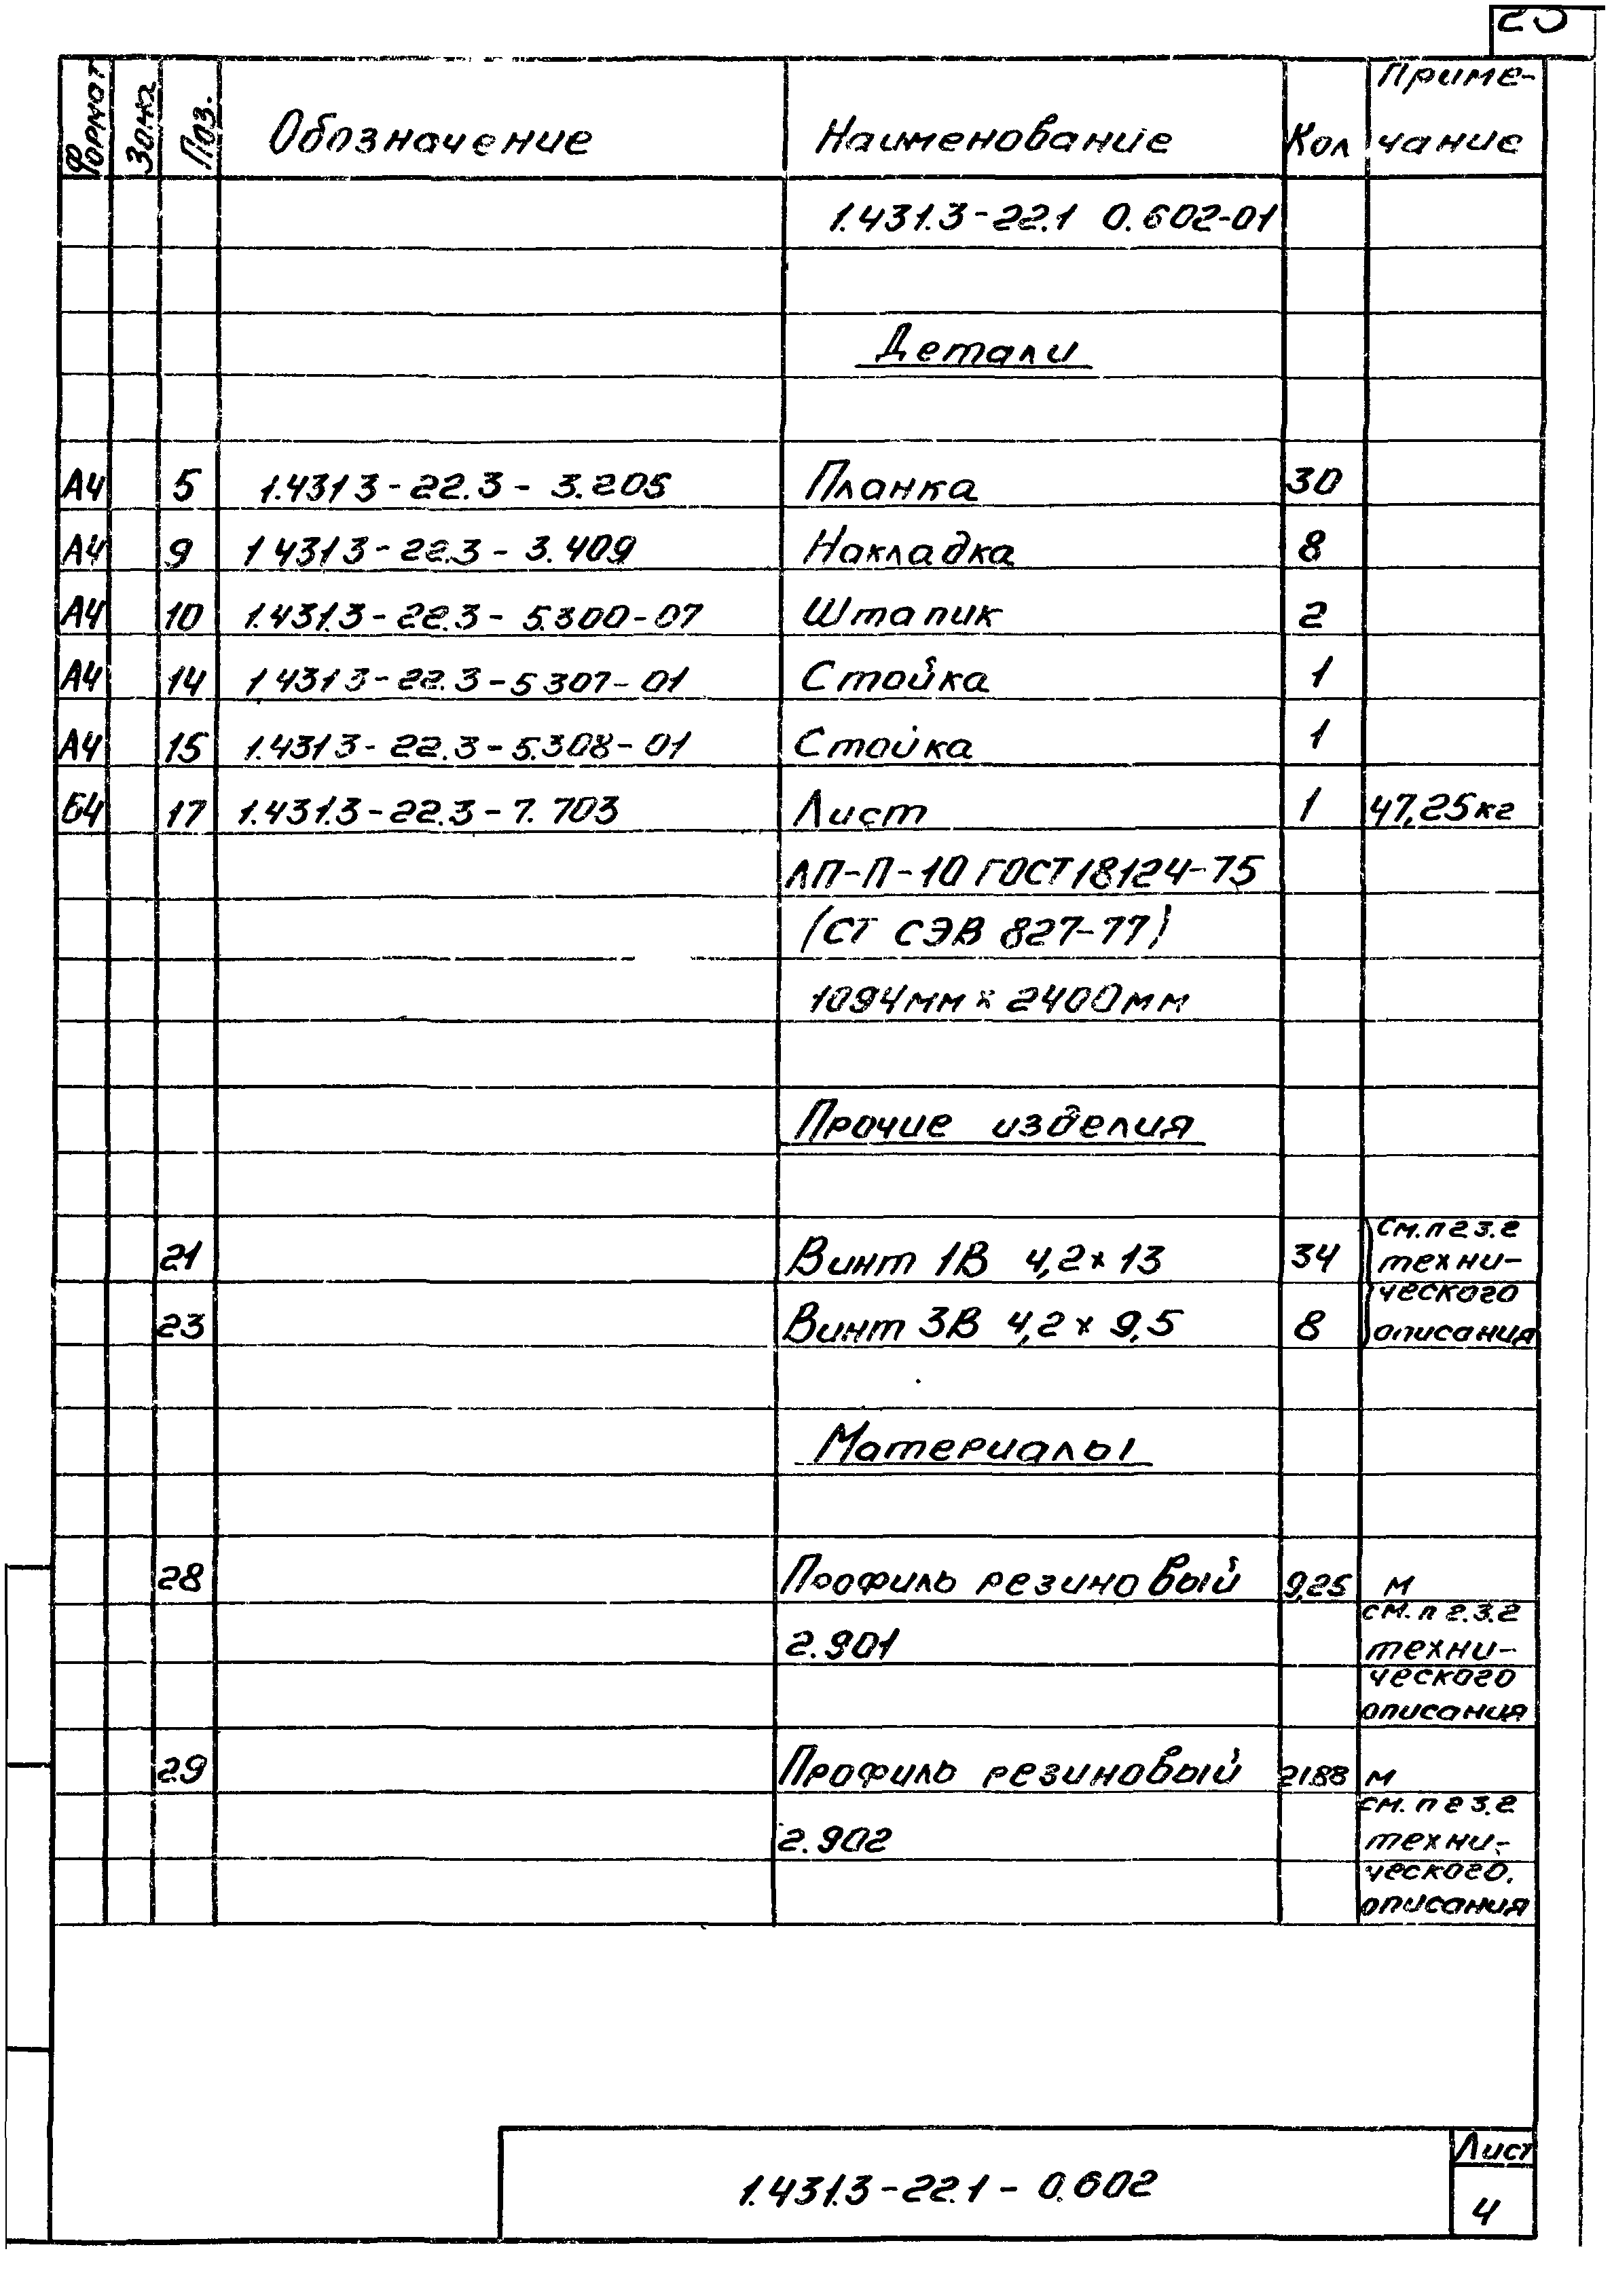 Формат Зона Поз. Обозначение Наименование Кол Приме-
чание
1.431.3-22.1 0.602-01
Детали
А4 5 1.431 3-22.3-3.205 Планка 30
А4 9 1 431 3-22.3-3.409 Накладка 8
А4 10 1.431.3-22.3-5.300-07 Штапик 2
А4 14 1 431 3-22.3-5 307-01 Стойка 1
А4 15 1.431 3-22.3-5.308-01 Стойка 1
Б4 17 1.431.3-22.3-7.703 Лист 1 47,25кг
ЛП-П-10 ГОСТ18124-75
(СТ СЭВ 827-77)
1094мм × 2400мм
Прочие изделия
см.п 2 3.2
21 Винт 1В 4,2×13 34 техни-
ческого
23 Винт 3В 4,2×9,5 8 описания
Материалы
28 Профиль резиновый 9,25 м
см. п 2.3.2
2.901 техни-
ческого
описания
29 Профиль резиновый 21.88 м
см. п 2 3.2
2.902 техни-
ческого.
описания
1.431.3-22.1-0.602
Лист
4